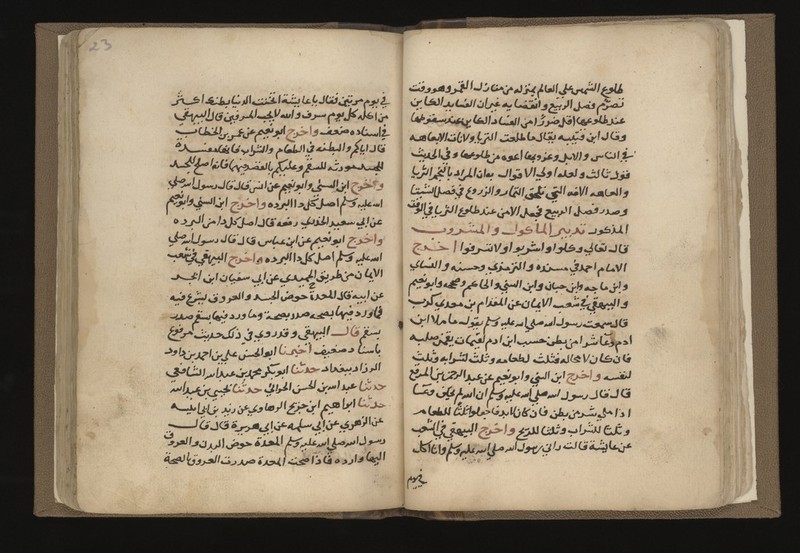 طلوع الشمس على العالم بمنزله من منازل القمر وهو وقت
تصرم فصل الربيع وانقضايه غير ان الفساد الكاين
عند طلوعها اقل ضررا من الفساد الكاين عند سقوطها
وقال ابن قتيبه يقال ما طلعت الثريا ولا نات الابعاهه
في الناس والابل وغروبها اعوه من طلوعها وفي الحديث
قول ثالث ولعله اولي الاقوال به ان المراد بالنجم الثريا
والعاهه الافه التي تلحق الثمار والزروع في فصل الشتا
وصدر فصل الربيع فحصل الامن عند طلوع الثريا في الوقت
المذكور تدبير الماكول والمشروب
قال تعالي وكلوا واشربوا ولا تسرفوا اخرج
الامام احمد في مسنده والترمذي وحسنه والنساي
وابن ماجه وابن حبان وابن السني والحاكم وصححه وابو نعيم
والبيهقي في شعب الايمان عن المقدام بن معدي كرب
قال سمعت رسول الله صلي الله عليه وسلم يقول ما ملا ابن
ادم وعا شر من بطن حسب ابن ادم لقيمات يقمن صلبه
فان كان لا محاله فثلث لطعامه وثلث لشرابه وثلث
لنفسه واخرج ابن السني وابو نعيم عن عبد الرحمن بن المرقع
قال قال رسول الله صلي الله عليه وسلم ان الله لم يخلق وعآ
اذا ملي شر من بطن فان كان لابد فاجعلوا ثلثا للطعام
وثلثا للشراب وثلثا للريح واخرج البيهقي في الشعب
عن عايشة قالت راني رسول الله صلي الله عليه وسلم وانا اكل
في يوم
23
في يوم مرتين فقال يا عايشة اتخذت الدنيا بطنك اكثر
من اكله كل يوم سرف والله لا يحب المسرفين قال البيهقي
في اسناده ضعف واخرج ابو نعيم عن عمر بن الخطاب
قال اياكم والبطنه في الطعام والشراب فانها مفسدة
للجسد مورثه للسقم وعليكم بالقصد فيهما فانه اصلح للجسد
واخرج ابن السني وابو نعيم عن انس قال قال رسول الله صلي
الله عليه وسلم اصل كل دا البرده واخرج ابن السني وابو نعيم
عن ابي سعيد الخدري رفعه قال اصل كل دا من البرده
واخرج ابو نعيم عن ابن عباس قال قال رسول الله صلي
الله عليه وسلم اصل كل دا البرده واخرج البيهقي في شعب
الايمان من طريق الحميدي عن ابي سفيان ابن ابجر
عن ابيه قال المعدة حوض الجسد والعروق تشرع فيه
فما ورد فيها بصحه صدر بصحه وما ورد فيها بسقم صدر
بسقم قال البيهقي وقد روي في ذلك حديث مرفوع
باسناد ضعيف اخبرنا ابو الحسن علي بن احمد بن داود
الرزاز ببغداد حدثنا ابو بكر محمد بن عبد الله الشافعي
حدثنا عبد الله بن الحسن الحراني حدثنا يحيي بن عبد الله
حدثنا ابراهيم ابن جريج الرهاوي عن زيد بن ابي انيسه
عن الزهري عن ابي سلمه عن ابي هريرة قال قال
رسول الله صلي الله عليه وسلم المعدة حوض البدن والعروق
اليها وارده فاذا صحت المعدة صدرت العروق بالصحة